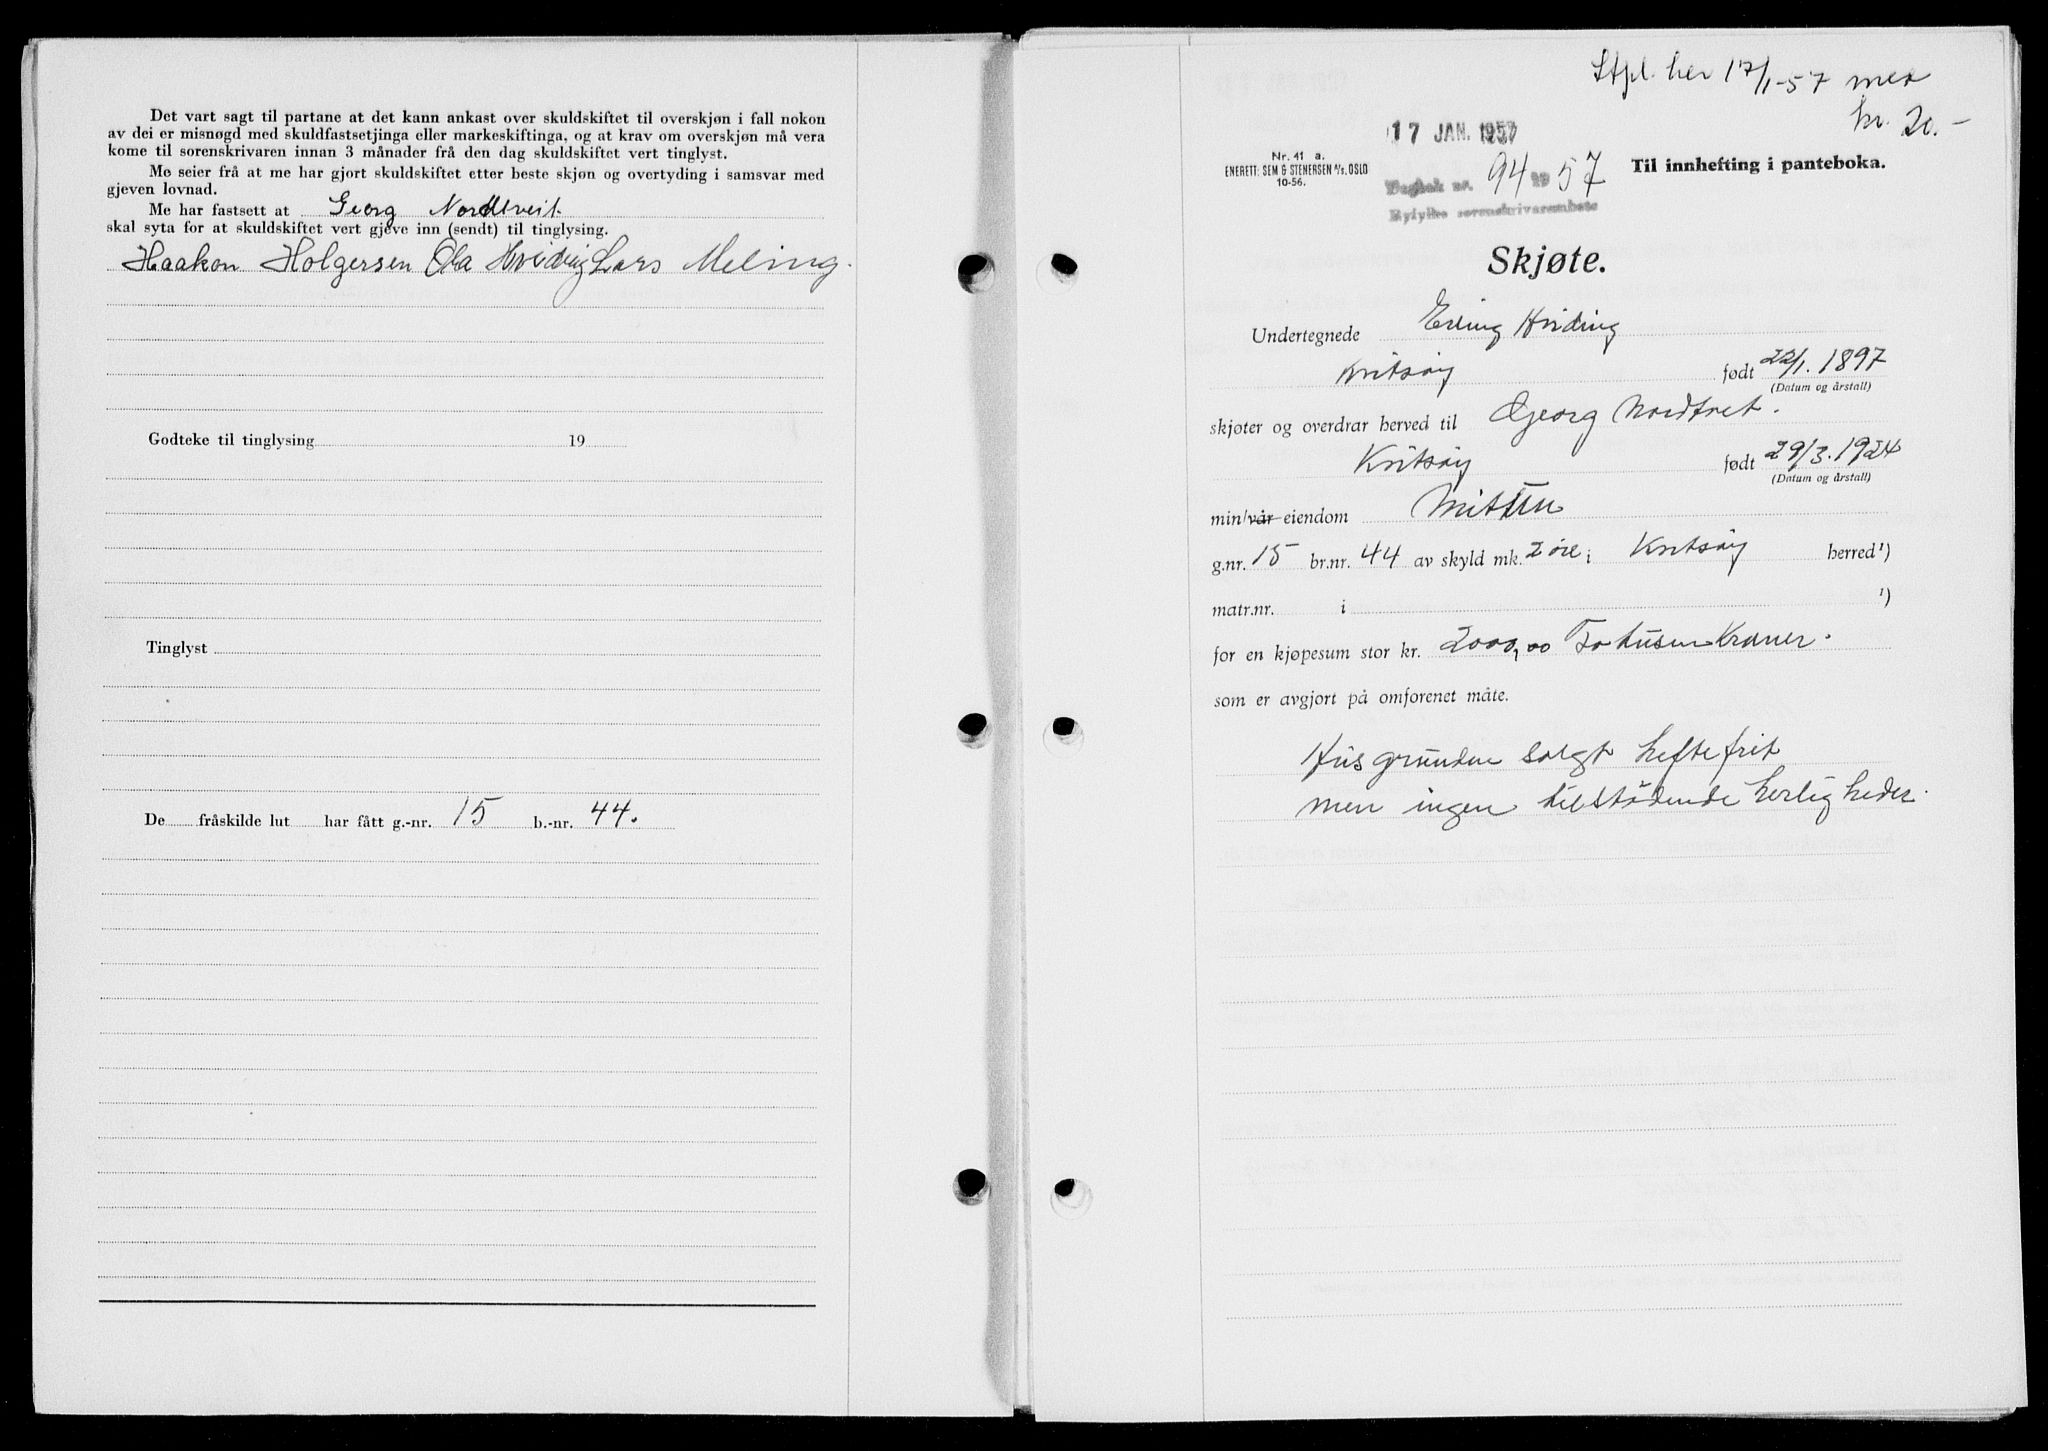 Det vart sagt til partane at det kann ankast over skuldskiftet til overskjøn i fall nokon
av dei er misnøgd med skuldfastsetjinga eller markeskiftinga, og at krav om overskjøn må vera
kome til sorenskrivaren innan 3 månader frå den dag skuldskiftet vert tinglyst.
Me seier frå at me har gjort skuldskiftet etter beste skjøn og overtyding i samsvar med
gjeven lovnad.
Me har fastsett at Georg Nordtveit
skal syta for at skuldskiftet vert gjeve inn (sendt) til tinglysing.
Haakon Holgersen Ola Hviding Lars Meling.
Godteke til tinglysing 19
Tinglyst
De fråskilde lut har fått g.-nr. 15 b.-nr. 44.
Stpl. her 17/1-57 med
kr. 20.-
17 JAN. 1957
Nr. 41 a.
ENERETT: SEM & STENERSEN A/S. OSLO
10-56.
Dagbok nr. 94 19 57
Ryfylke sorenskrivarembete
Til innhefting i panteboka.
Skjøte.
Undertegnede Erling Hviding
Kvitsøy født 22/1. 1897
(Datum og årstall)
skjøter og overdrar herved til Georg Nordtvet.
Kvitsøy født 29/3. 1924
(Datum og årstall)
min/vår eiendom
g.nr. 15 br.nr. 44 av skyld mk. 2 øre i Kvitsøy herred ¹)
matr.nr. i ¹)
for en kjøpesum stor kr. 2000,00 Totusen Kroner.
som er avgjort på omforenet måte.
Husgrunden solgt heftefrit
men ingen tilstødende herligheder.